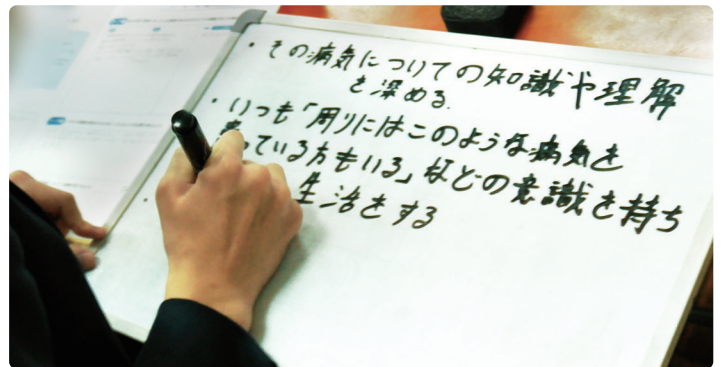 ・その病気についての知識や理解
を深める.
・いつも「周りにはこのような病気を
っている方もいる」などの意識を持ち
生活をする